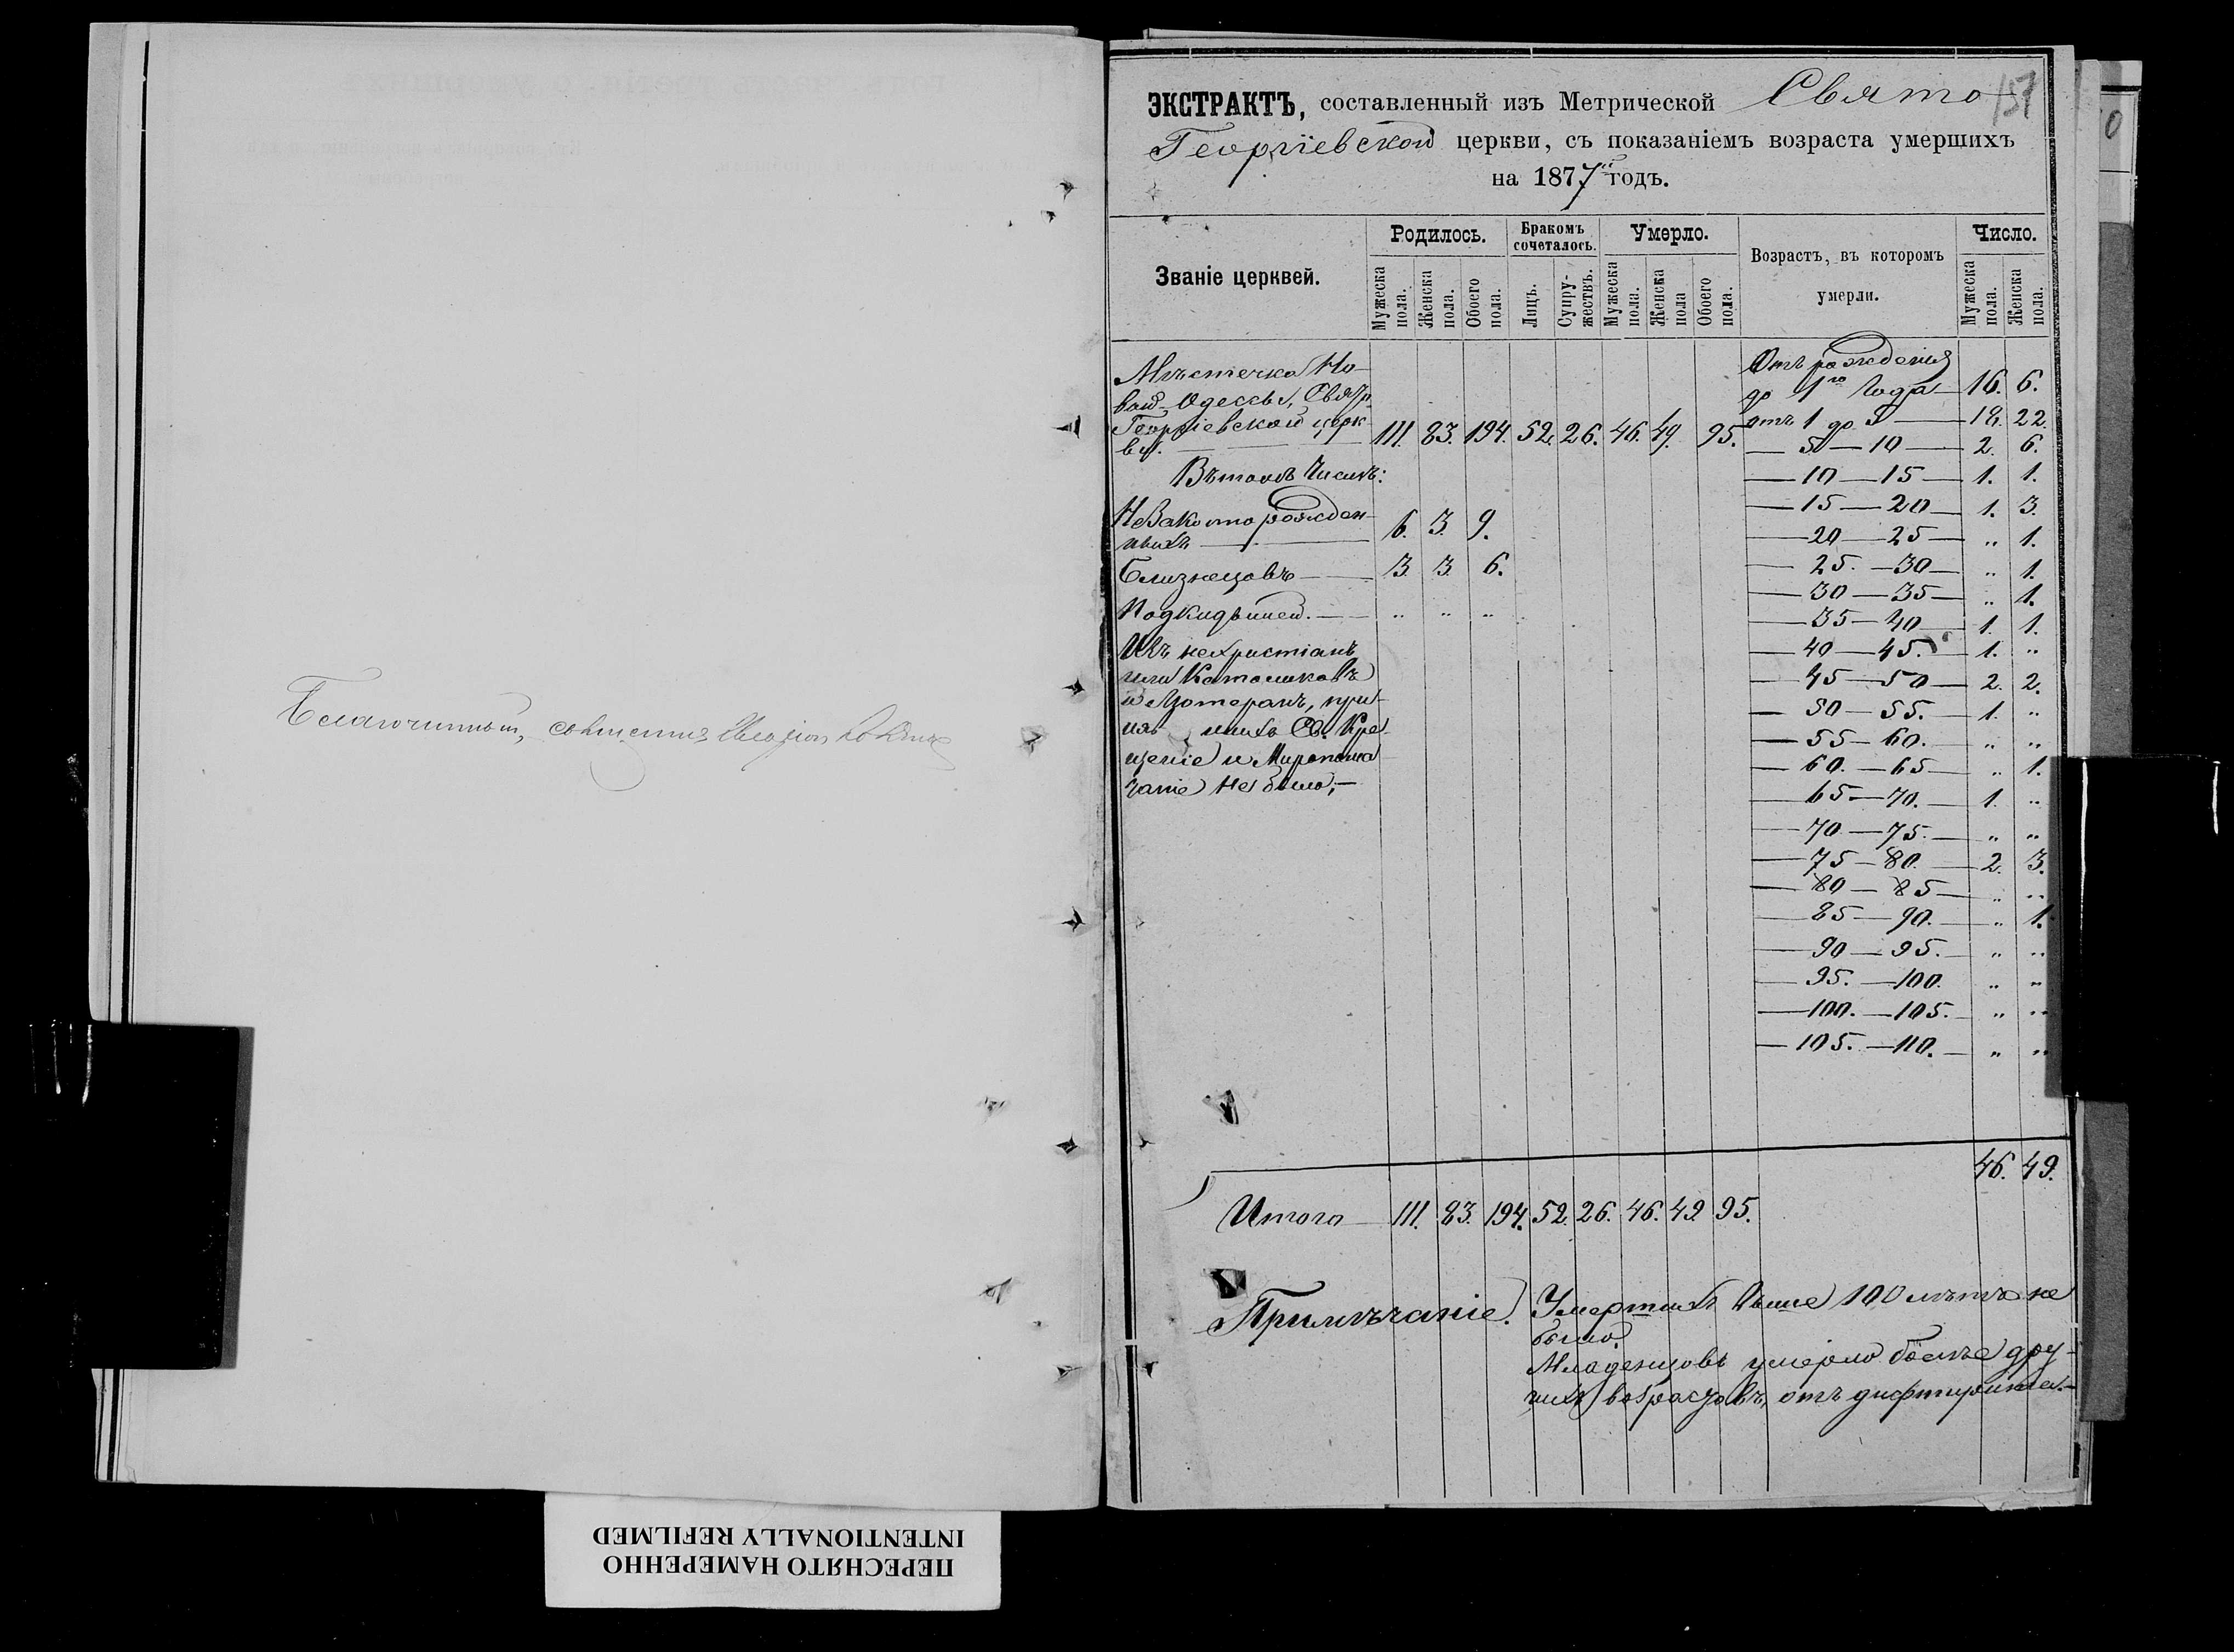 Благочинный, священникъ
ЭКСТРАКТЪ, составленный изъ Метрической Свято
157
Георгіевской церкви, съ показаніемъ возраста умершихъ
на 1877й годъ.
Званіе церквей. Родилось. Бракомъ сочеталось. Умерло. Возрастъ, въ которомъ умерли. Число.
Мужеска пола. Женска пола. Обоего пола. Лицъ. Супружествъ. Мужеска пола. Женска пола Обоего пола. Мужеска пола. Женска пола.
Мѣстечка Но-
вой Одессы, Свят.
Георгіевской церк-
ви. 111. 83. 194. 52. 26. 46. 49. 95.
Въ томъ числѣ:
Незаконорожден-
ныхъ 6. 3. 9.
Близнецовъ 3. 3. 6.
Подкидышей. — „ „ „
Изъ нехристіанъ
или Католиковъ
и Лютеранъ, при-
нявшихъ Св. Кре-
щеніе и Миропома-
заніе не было; —
Отъ рожденія
до 1го года — 16. 6.
отъ 1 до 5 — 18. 22.
— 5 — 10 — 2. 6.
— 10 — 15 — 1. 1.
— 15 — 20 — 1. 3.
— 20 — 25 — „ 1.
— 25. — 30 — „ 1.
— 30 — 35 — „ 1.
— 35 — 40 — 1. 1.
— 40 — 45. — 1. „
— 45 — 50 — 2. 2.
— 50 — 55. — 1. „
— 55 — 60. — „ „
— 60. — 65 — „ 1.
— 65 — 70. — 1. „
— 70 — 75. — „ „
— 75 — 80. — 2. 3.
— 80 — 85 — „ „
— 85 — 90. — „ 1.
— 90 — 95. — „ „
— 95. — 100. „ „
— 100. — 105. — „ „
— 105. — 110. — „ „
46. 49.
Итого — 111. 83. 194. 52. 26. 46. 49. 95.
Примѣчаніе. Умершихъ выше 100 лѣтъ не
было.
Младенцовъ умерло болѣе дру-
гихъ возрастовъ, отъ дифтерита. —
ПЕРЕСНЯТО НАМЕРЕННО
INTENTIONALLY REFILMED